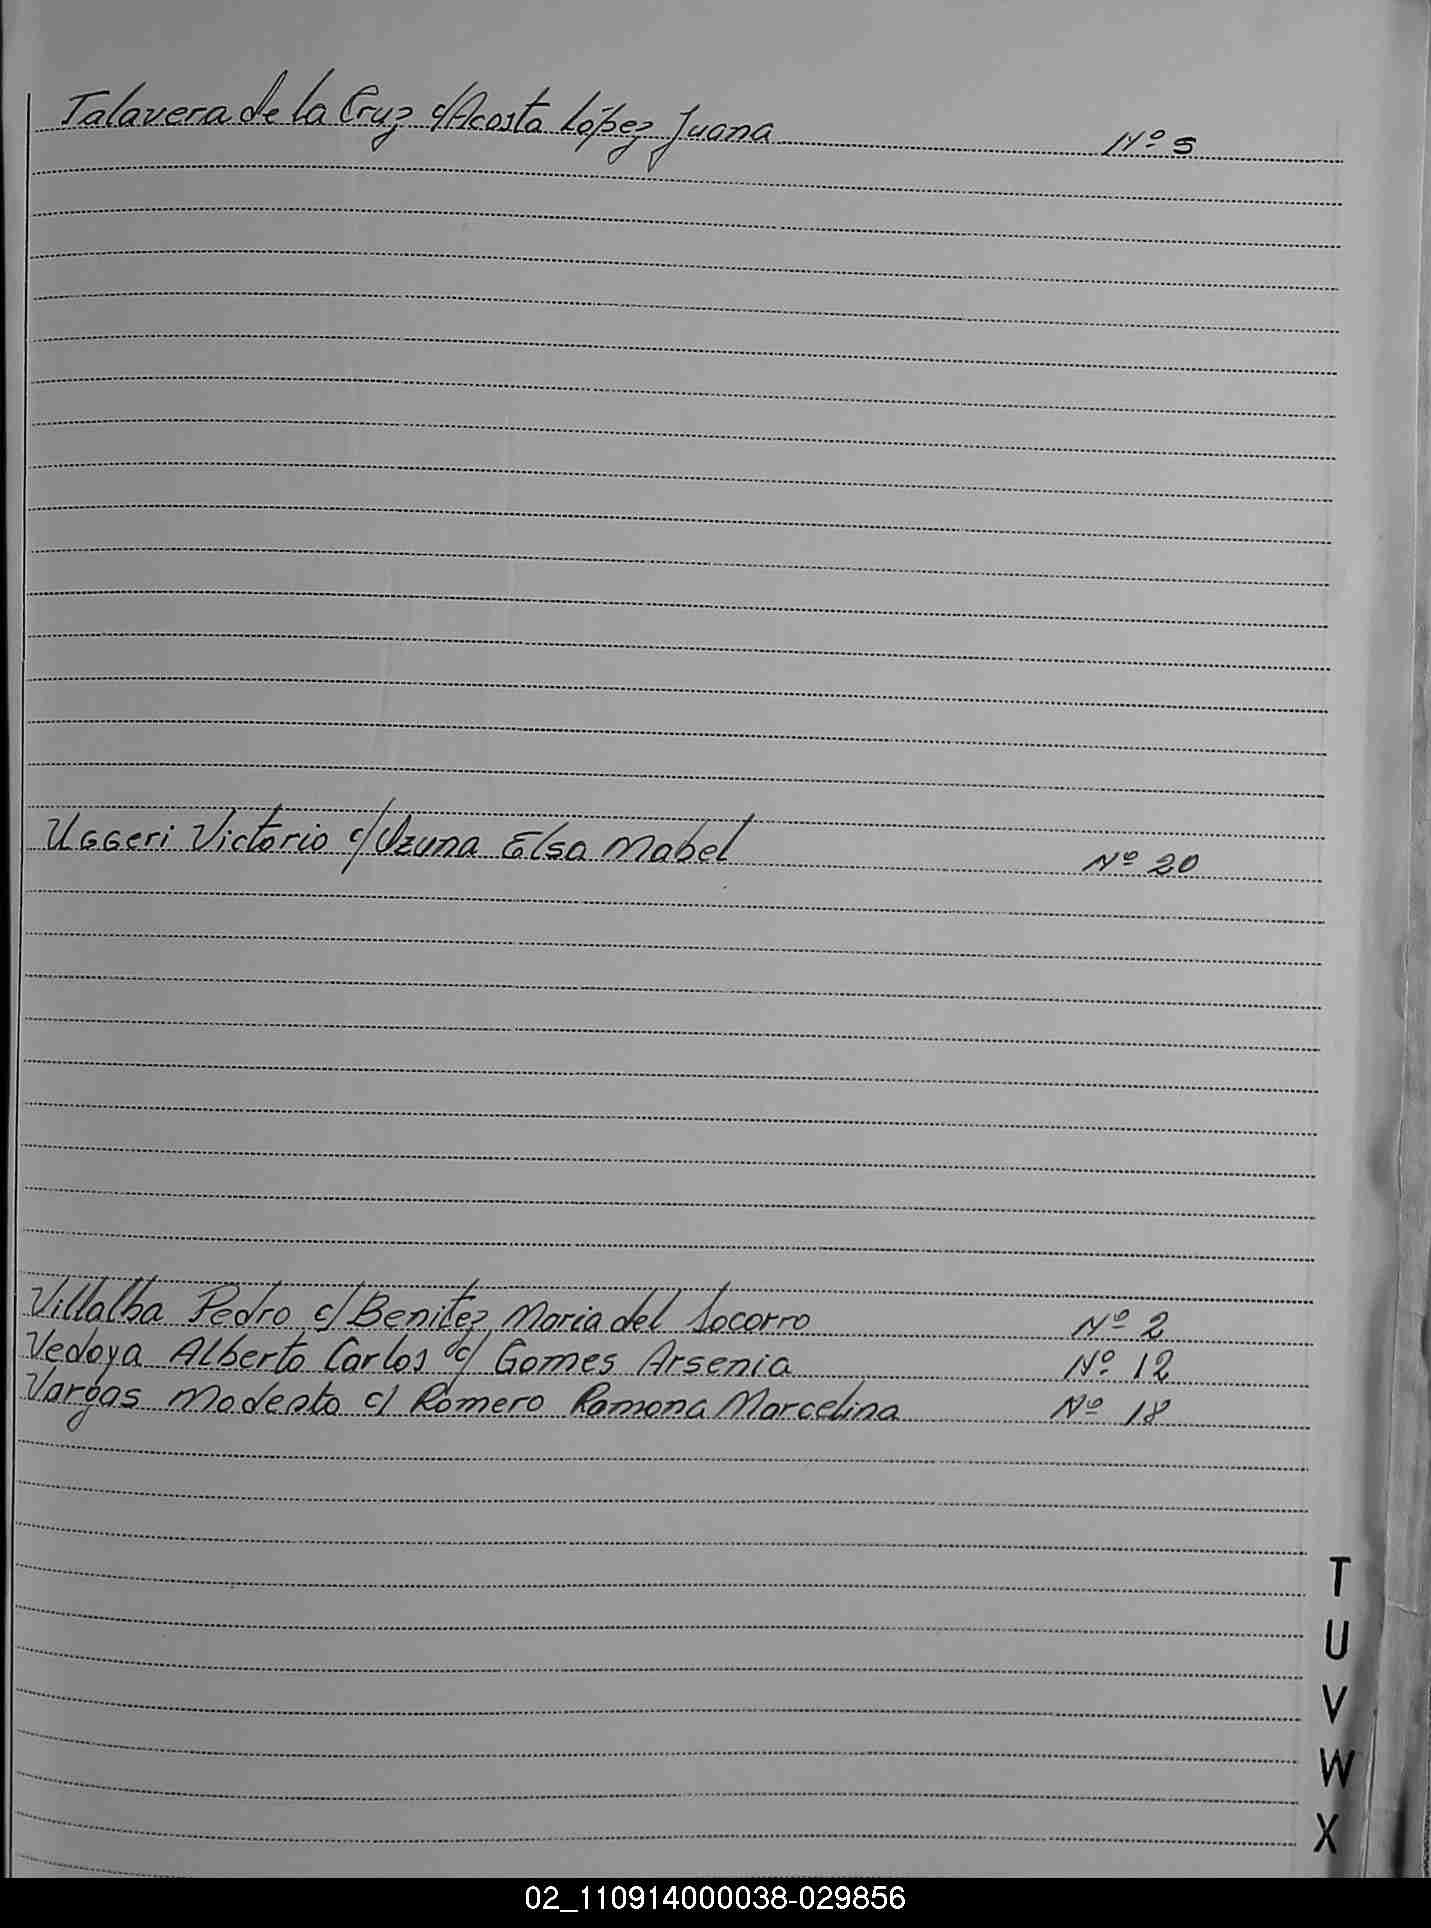 Talavera de la Cruz c/Acosta López Juana Nº 5
Uggeri Victorio c/Ozuna Elsa Mabel Nº 20
Villalba Pedro c/Benitez Maria del Socorro Nº 2
Vedoya Alberto Carlos c/ Gomes Arsenia Nº 12
Vargas Modesto c/ Romero Ramona Marcelina Nº 18
T
U
V
W
X
02_110914000038-029856